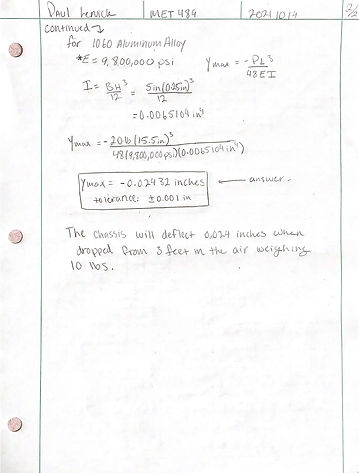 Paul Lenick MET 489 2021 10 14 2/2
continued
for 1060 Aluminum Alloy
*E = 9,800,000 psi
Ymax = -PL³/48EI
I = BH³/12 = 5in(0.25in)³/12
= 0.0065104 in⁴
Ymax = -20lb(15.5in)³/48(9,800,000psi)(0.0065104in⁴)
Ymax = -0.02432 inches ← answer.
tolerance: ±0.001 in
The chassis will deflect 0.024 inches when
dropped from 3 feet in the air weighing
10 lbs.